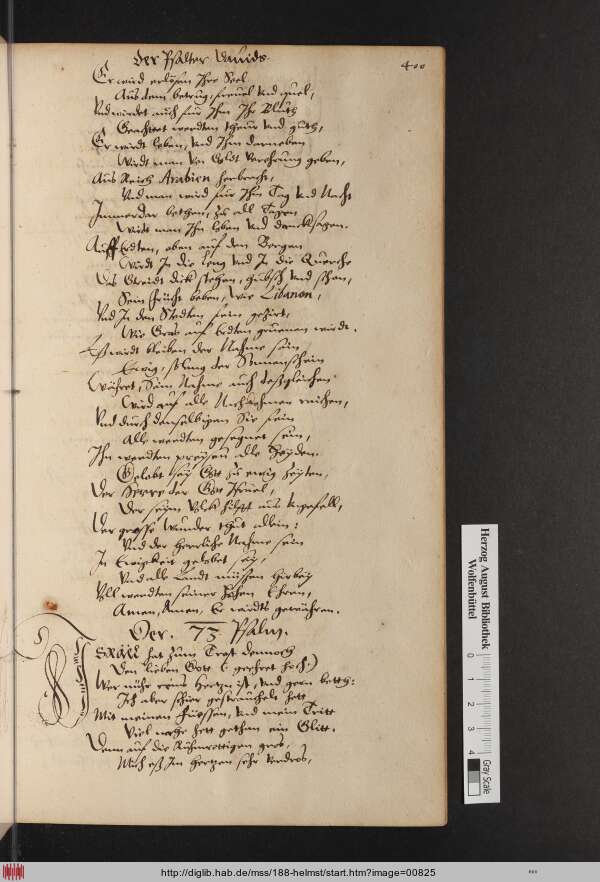 Der Psalter Dauids.
400
Er wird erlösen Ihre Seel
Aus dem betrug, freuel vnd quel,
Vnd wirdet auch für Ihm Ihr Bluth
Geachtet werdten theur vnd guth,
Er wirdt leben, vnd Ihm darneben
Wirdt man von Goldt verehrung geben,
Aus Reich Arabien herbracht,
Vnd man wird für Ihn Tag vnd Nacht
Immerdar bethen, zu all Tagen
Wirdt man Ihn loben vnd dancksagen.
Auff Erdten, oben auf den Bergen
Wirdt In die leng vnd In die Querche
Das Getreidt dick stehen, hübsch vnd schon,
Sein frücht beben, wie Libanon,
Vnd In den Stedten sein geziert,
Wie Gras auf Erdten gruenen wirdt.
Es wirdt bleiben der Nahme sein
Ewig, solang der Sonnenschein
Währet, Sein Nahme auch desgleichen
Wird auf alle Nachkohmen reichen,
Vnd durch denselbigen Sie fein
Alle werdten gesegnet sein,
Ihn werdten preysen alle Heyden.
Gelobt sey Gott zu ewig Zeyten,
Der Herre der Gott Israel,
Der seym Volck hilfft aus vngefell,
Der grosse Wunder thut allein:
Vnd der herrliche Nahme sein
In Ewigkeit gelobet sey,
Vnd alle Landt müssen hirbey
Voll werdten seiner hohen Ehren,
Amen, Amen, Er wirdts gewähren.
Der. 73 Psalm.
ISRAEL hat zum Trost dennoch
Den lieben Gott (: geehret hoch:)
Wer nuhr reins Hertzn ist, vnd gern bette:
Ich aber schier gestrauchelt hett
Mit meinen Füessen, vnd mein Tritt
Viel nahe hett gethan ein Glitt.
Denn auf die Ruhmrettigen gros,
Mich es Im Hertzen sehr verdros,
Herzog August Bibliothek
Wolfenbüttel
0 1 2 3 4
Gray Scale
http://diglib.hab.de/mss/188-helmst/start.htm?image=00825